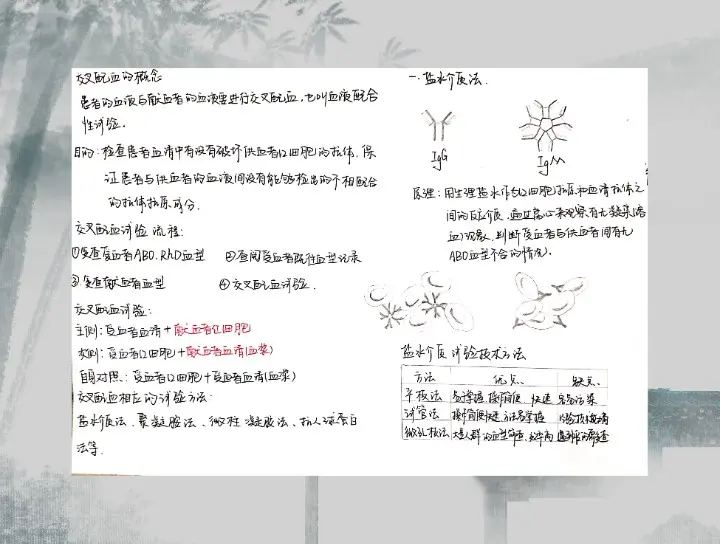 交叉配血的概念
患者的血液与献血者的血液要进行交叉配血，也叫血液配合
性试验。
目的：检查患者血清中有没有破坏供血者红细胞的抗体，保
证患者与供血者的血液间没有能够检出的不相配合
的抗体抗原成分。
交叉配血试验流程：
①复查受血者ABO、RhD血型 ②查阅受血者既往血型记录
③复查献血者血型 ④交叉配血试验。
交叉配血试验：
主侧：受血者血清+献血者红细胞
次侧：受血者红细胞+献血者血清(血浆)
自身对照：受血者红细胞+受血者血清(血浆)
交叉配血相应的试验方法：
盐水介质法、聚凝胺法、微柱凝胶法、抗人球蛋白
法等。
一、盐水介质法。
IgG IgM
原理：用生理盐水作红细胞抗原和血清抗体之
间的反应介质，通过离心来观察有无凝集(溶
血)现象，判断受血者与供血者间有无
ABO血型不合的情况。
盐水介质试验技术方法
方法 优点 缺点
平板法 易掌握 操作简便 快速
试管法 操作简便快速 方法易掌握
微孔板法 大量人群的血型筛查